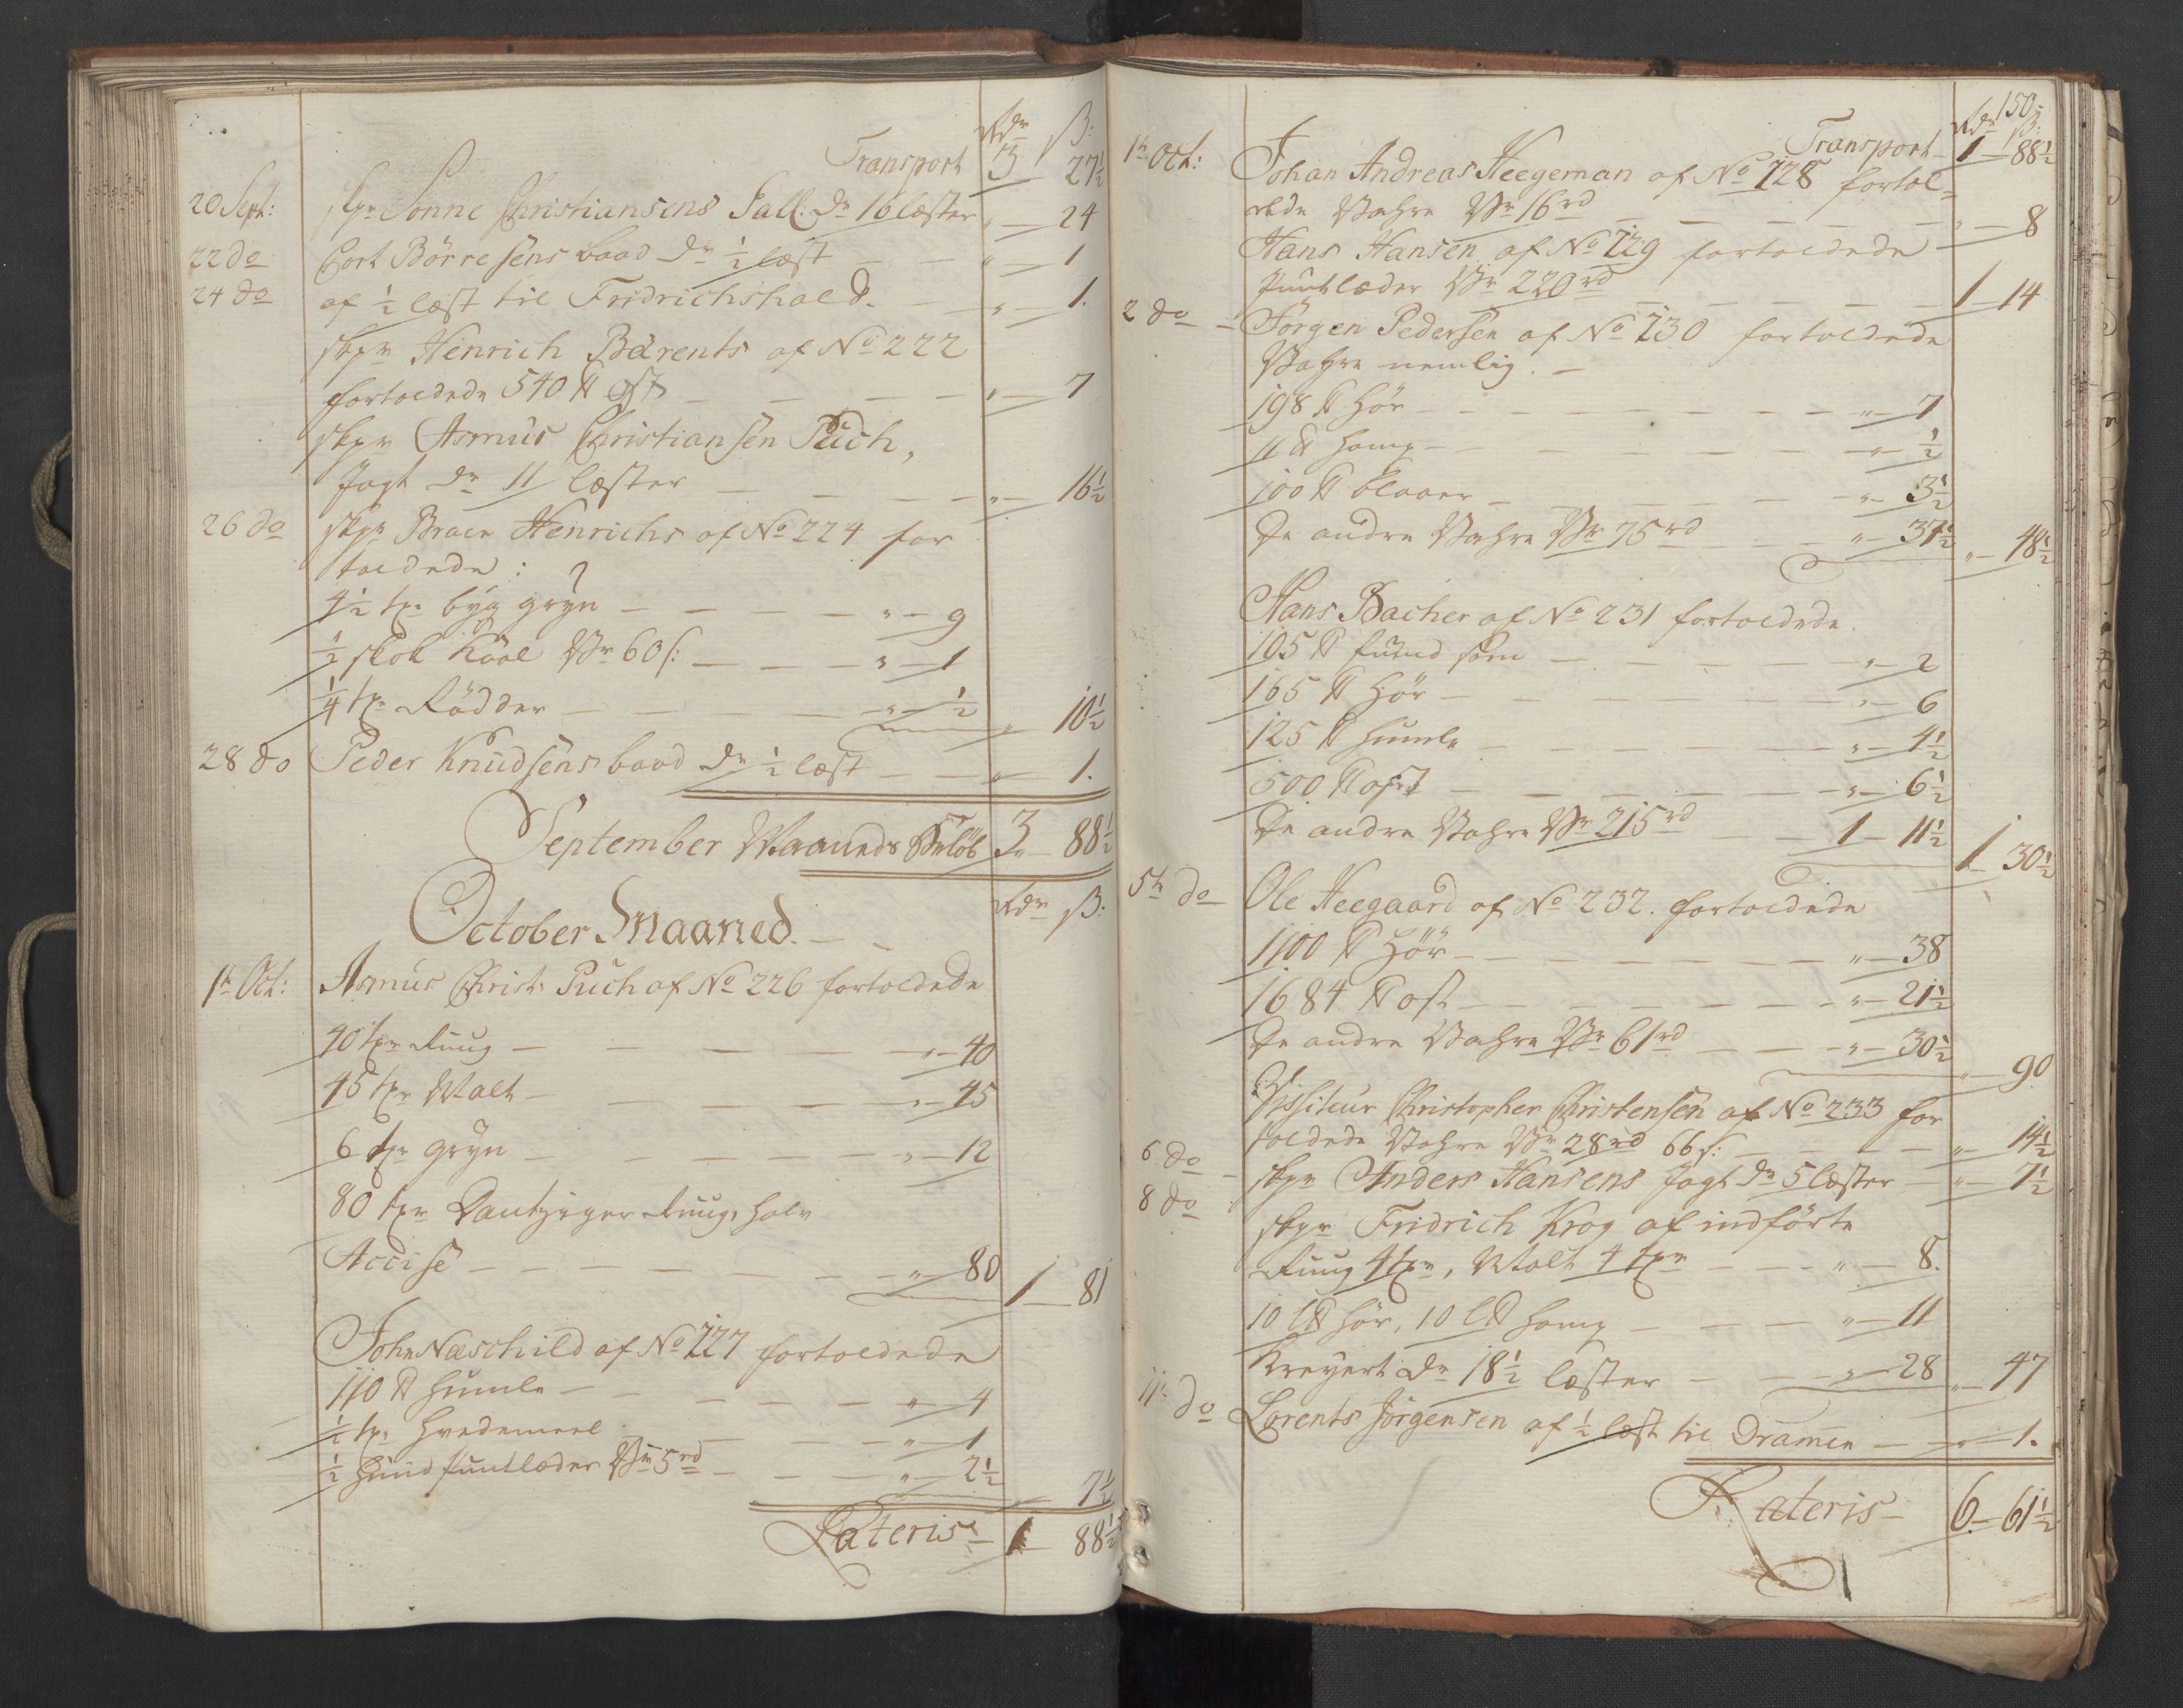 Rdr ß:
Transport 3 27½
20 Sept: Skpr Sonne Christiansens Jall: dr 16 læster „ — 24
22 do Cort Börresens baad dr ½ læst „ — 1
24 do af ½ læst til Fridrichshald. „ — 1.
skpr Henrich Bärents af No 222
fortoldede 540 ℔ ost „ — 7
skpr Asmus Christiansen Puch,
Jagt dr 11 læster „ — 16½
26 do skpr Braer Henrichs af No 224 for
toldede:
4½ tr. byg gryn „ — 9
½ skok kaal Vr 60 s: „ — 1
¼ tr Rödder „ — ½ „ 10½
28 do Peder Knudsens baad dr ½ læst „ 1.
September Maaneds Beløb 3 — 88½
Rdr ß:
October Maaned.
1t Oct: Asmus Christ: Puch af No 226 fortoldede
40 tr Rug „ — 40
45 tr Malt „ — 45
6 tr gryn „ — 12
80 tr Dantziger Rug, halv
Accise „ — 80 1 — 81
John Naschild af No 227 fortoldede
110 ℔ humle „ — 4
½ tr. Hvedemeel „ — 1
½ hund juntlæder Vr 5 rd „ — 2½ 7½
Lateris 1 88½
150.
Rdr ß:
Transport 1 — 88½
1t Oct: Johan Andreas Heegeman af No 228 fortol=
dede Vahre Vr 16 rd „ — 8
Hans Hansen af No 229 fortoldede
Juntlæder Vr 220 rd 1 — 14
2 do Jörgen Pedersen af No 230 fortoldede
Vahre nemlig.
198 ℔ hör „ — 7
11 ℔ hamp „ — ½
100 ℔ blaaer „ — 3½
De andre Vahre Vr 75 rd „ — 37½ „ — 48½
Hans Bacher af No 231 fortoldede.
105 ℔ som „ — 2
165 ℔ Hör „ — 6
125 ℔ humle „ — 4½
500 ℔ ost „ — 6½
De andre Vahre Vr 215 rd 1 — 11½ 1 30½
5t do Ole Heegaard af No 232. fortoldede
1100 ℔ Hör „ — 38
1684 ℔ ost „ — 21½
De andre Vahre Vr 61 rd „ — 30½ „ — 90
Visiteur Christopher Christensen af No 233 for
toldede Vahre Vr 28 rd 66 s: „ — 14½
6 do skpr Anders Hansens Jagt dr 5 læster „ — 7½
8 do skpr Fridrich Krog af indförte
Rug 4 tr, Malt 4 tr „ — 8.
10 l℔ hör, 10 l℔ hamp „ — 11
Kreyert dr 18½ læster „ — 28 „ — 47
11t do Lorents Jörgensen af ½ læst til Dramen „ — 1.
Lateris 6 — 61½